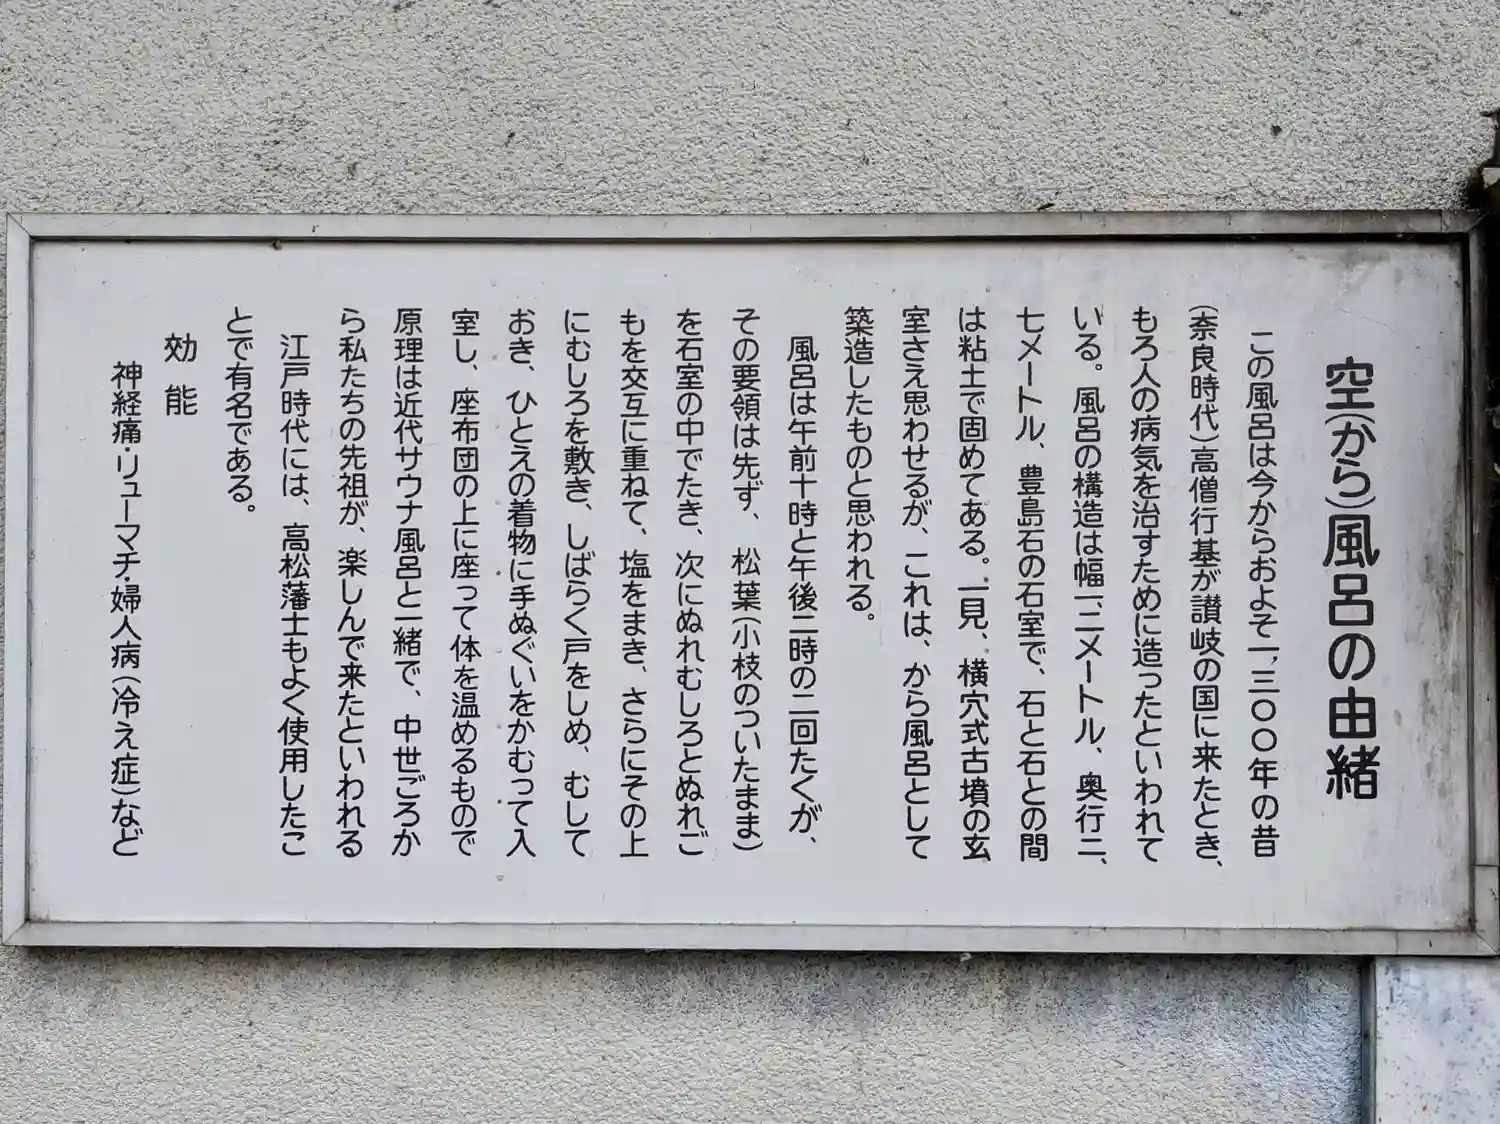 空(から)風呂の由緒
この風呂は今からおよそ一、三〇〇年の昔
(奈良時代)高僧行基が讃岐の国に来たとき、
もろ人の病気を治すために造ったといわれて
いる。風呂の構造は幅一、二メートル、奥行二、
七メートル、豊島石の石室で、石と石との間
は粘土で固めてある。一見、横穴式古墳の玄
室さえ思わせるが、これは、から風呂として
築造したものと思われる。
風呂は午前十時と午後二時の二回たくが、
その要領は先ず、松葉(小枝のついたまま)
を石室の中でたき、次にぬれむしろとぬれご
もを交互に重ねて、塩をまき、さらにその上
にむしろを敷き、しばらく戸をしめ、むして
おき、ひとえの着物に手ぬぐいをかむって入
室し、座布団の上に座って体を温めるもので
原理は近代サウナ風呂と一緒で、中世ごろか
ら私たちの先祖が、楽しんで来たといわれる
江戸時代には、高松藩士もよく使用したこ
とで有名である。
効能
神経痛・リューマチ・婦人病(冷え症)など